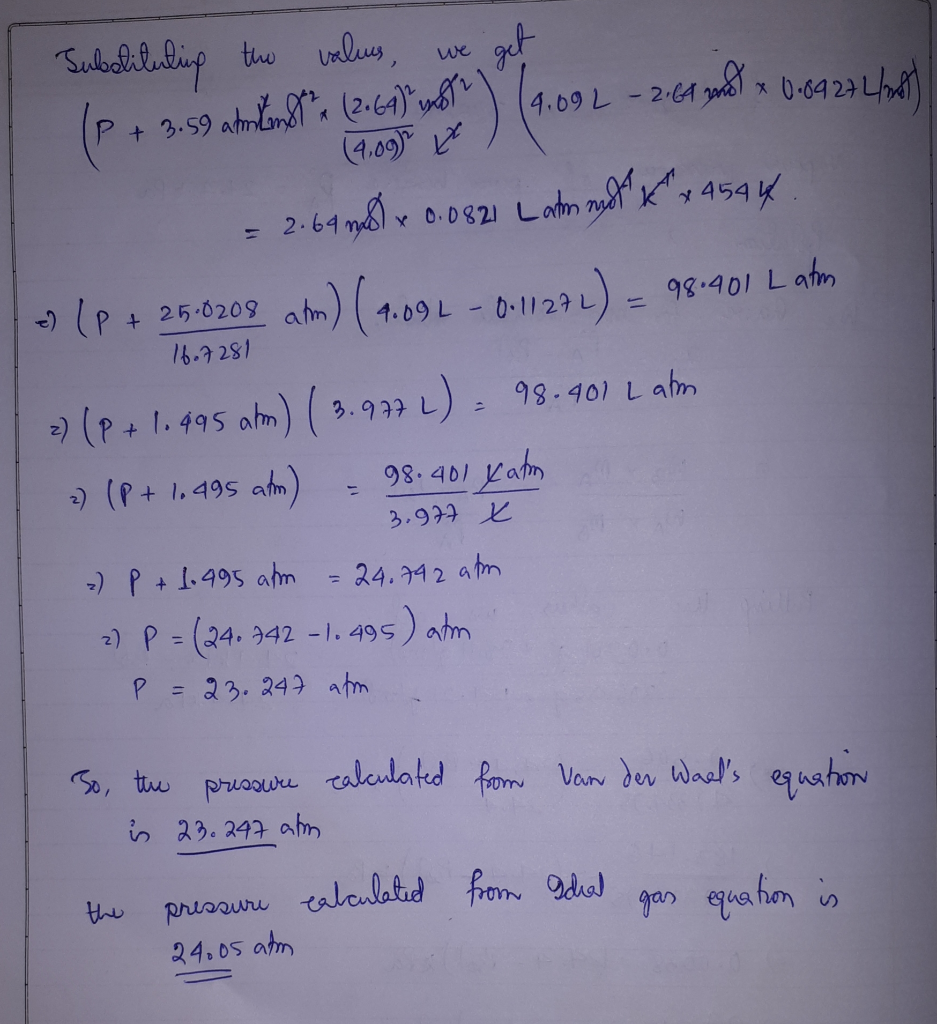 Substituting the values, we get
(P + 3.59 atm L² mol⁻² x (2.64)² mol² / (4.09)² L²) (4.09 L - 2.64 mol x 0.0427 L/mol)
= 2.64 mol x 0.0821 L atm mol⁻¹ K⁻¹ x 454 K.
=) (P + 25.0208 / 16.7281 atm) (4.09 L - 0.1127 L) = 98.401 L atm
=) (P + 1.495 atm) (3.977 L) = 98.401 L atm
=) (P + 1.495 atm) = 98.401 L atm / 3.977 L
=) P + 1.495 atm = 24.742 atm
=) P = (24.742 - 1.495) atm
P = 23.247 atm
So, the pressure calculated from Van der Waal's equation
is 23.247 atm
the pressure calculated from Ideal gas equation is
24.05 atm